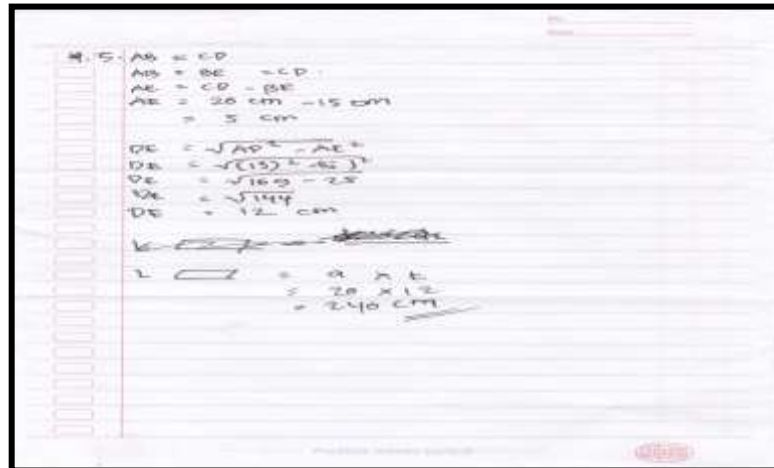 5. AB = CD
AB = BE = CD
AE = CD - BE
AE = 20 cm - 15 cm
= 5 cm
DE = √AD² - AE²
DE = √(13)² - (5)²
DE = √169 - 25
DE = √144
DE = 12 cm
L ▱ = a x t
= 20 x 12
= 240 cm